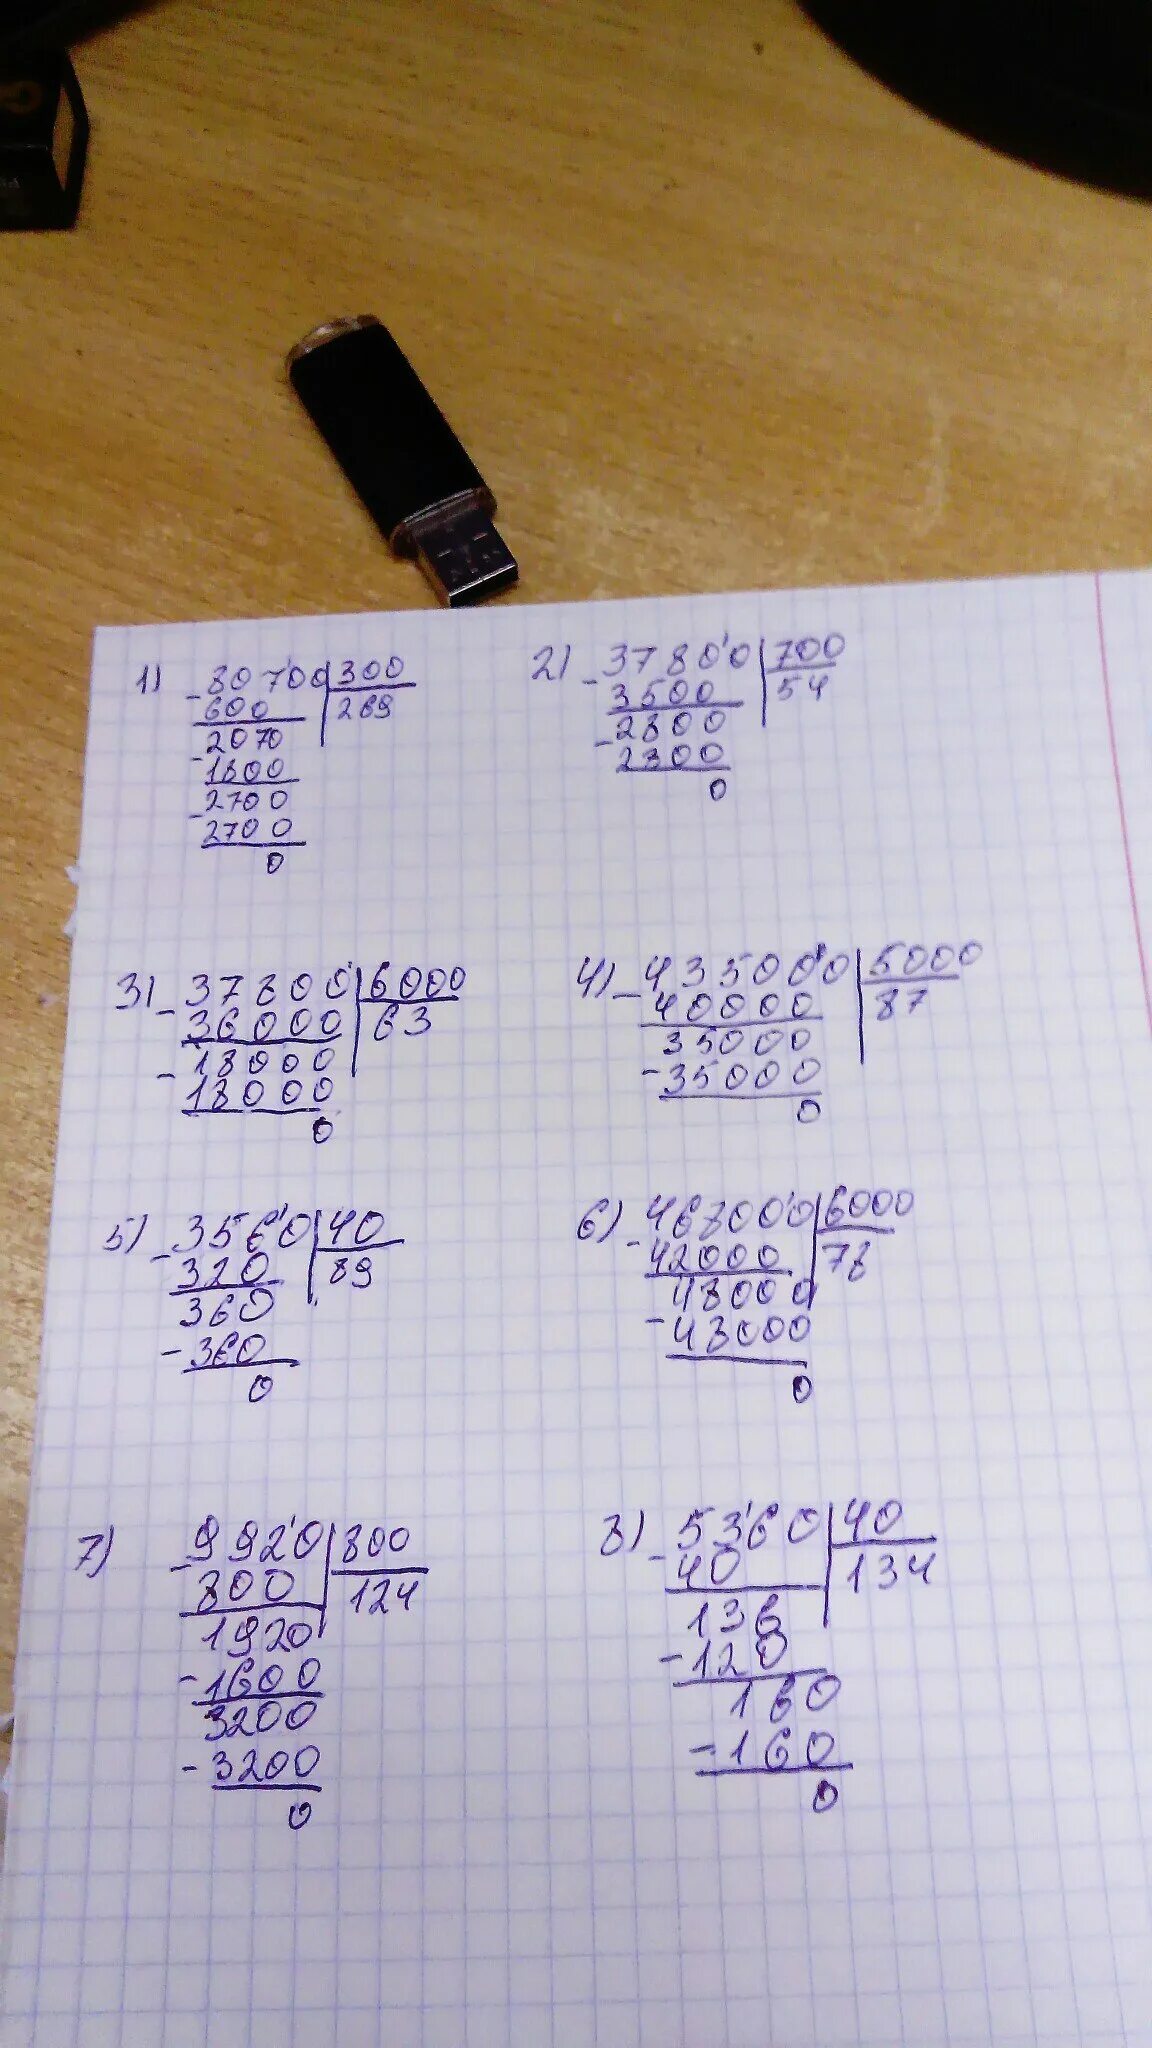 1) 80700 300
- 600 269
2070
- 1800
2700
- 2700
0
2) 37800 700
- 3500 54
2800
- 2800
0
3) 37800 6000
- 36000 63
18000
- 18000
0
4) 435000 5000
- 40000 87
35000
- 35000
0
5) 3560 40
- 320 89
360
- 360
0
6) 468000 6000
- 42000 78
48000
- 48000
0
7) 9920 800
- 800 124
1920
- 1600
3200
- 3200
0
8) 5360 40
- 40 134
136
- 120
160
- 160
0